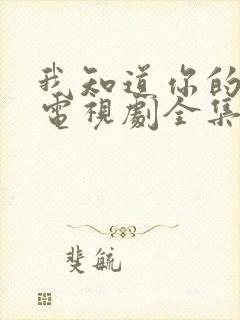 我知道你的
電視劇全集
斐毓